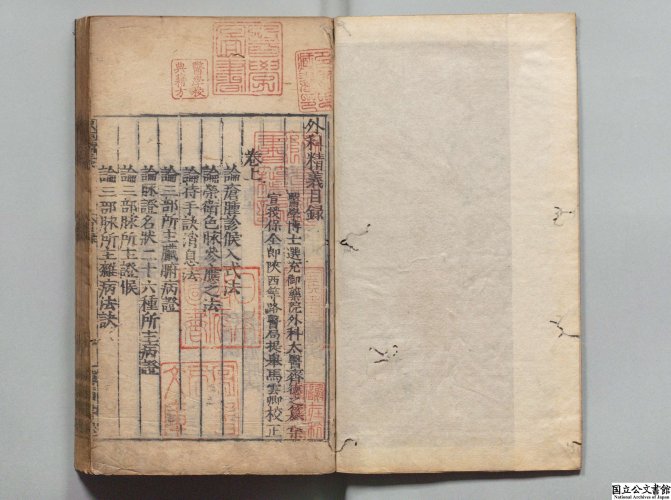 外科精義目録
醫學博士選充御藥院外科太醫齊德之纂集
宣授保全郎陝西等路醫局提舉馬雲卿校正
卷上
論瘡腫診候入式法
論榮衛色脉參應之法
論持手訣消息法
論三部所主藏腑病證
論脉證名狀二十六種所主病證
論三部脉所主證候
論三部脉所主雜病法訣
醫學校
典籍方
國立公文書館
National Archives of Japan